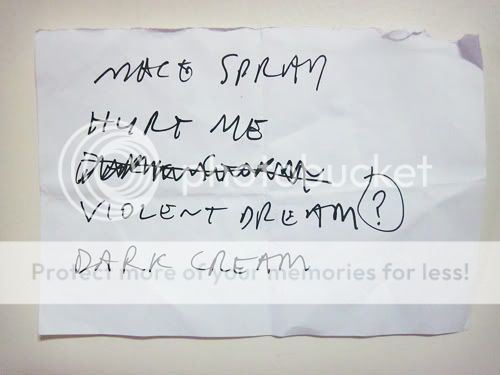 MACE SPRAY
HURT ME
photobucket
VIOLENT DREAM ?
Protect more of your memories for less!
DARK CREAM